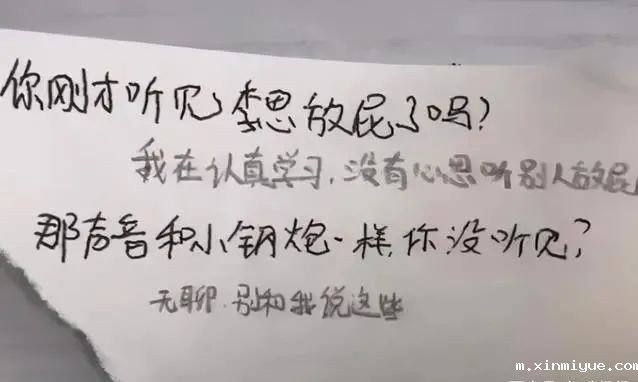 你刚才听见李思放屁了吗?
我在认真学习,没有心思听别人放屁
那声音和小钢炮一样,你没听见?
无聊.别和我说这些
m.xinmiyue.com